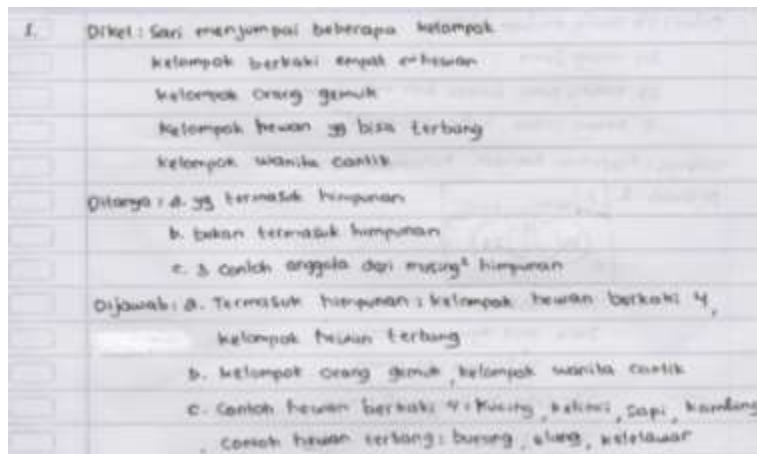 1. Diket : Sari menjumpai beberapa kelompok
kelompok berkaki empat hewan
kelompok orang gemuk
kelompok hewan yg bisa terbang
kelompok wanita cantik
Ditanya : a. yg termasuk himpunan
b. bukan termasuk himpunan
c. 3 contoh anggota dari masing² himpunan
Dijawab : a. Termasuk himpunan : kelompok hewan berkaki 4,
kelompok hewan terbang
b. kelompok orang gemuk, kelompok wanita cantik
c. Contoh hewan berkaki 4 : Kucing, kelinci, sapi, kambing
, contoh hewan terbang : burung, elang, kelelawar